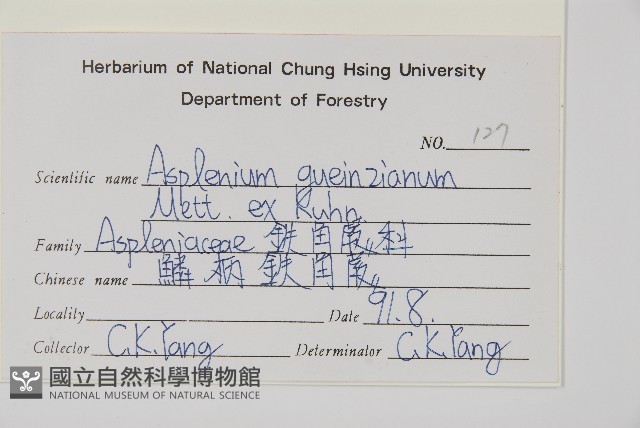 Herbarium of National Chung Hsing University
Department of Forestry
NO. 127
Scientific name Asplenium gueinzianum
Mett. ex Kuhn.
Family Aspleniaceae 鉄角蕨科
Chinese name 鱗柄鉄角蕨
Locality Date 91.8.
Collector C.K.Yang Determinator C.K.Yang
國立自然科學博物館
NATIONAL MUSEUM OF NATURAL SCIENCE